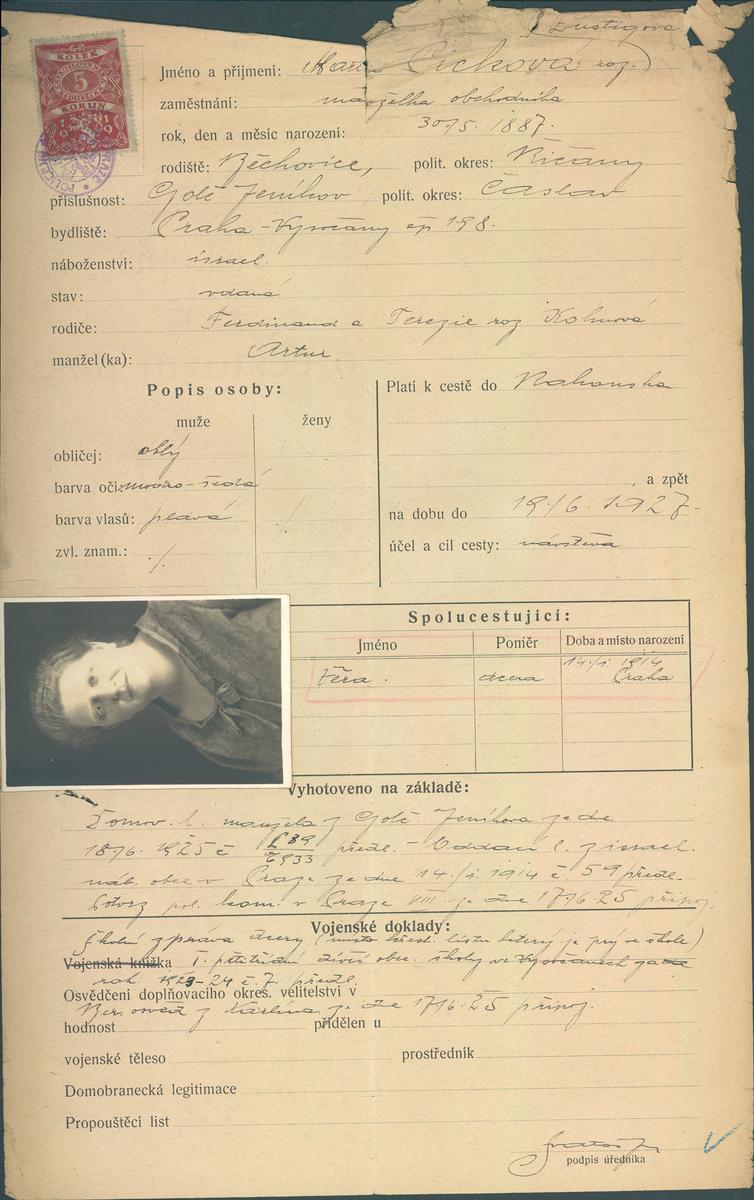 KOLEK
5
KORUN
Lustigova
Jméno a přijmení: Marie Picková roz.
zaměstnání: manželka obchodníka
rok, den a měsíc narození: 30/5. 1887.
rodiště: Běchovice, polit. okres: Říčany
příslušnost: Golč. Jeníkov polit. okres: Čáslav
bydliště: Praha - Vysočany čp 198.
náboženství: israel.
stav: vdaná
rodiče: Ferdinand a Terezie roz Kohnová
manžel (ka): Artur
Popis osoby:
muže ženy
obličej: oblý
barva očí: modro-šedá
barva vlasů: plavá ./.
zvl. znam.: ./.
Platí k cestě do Rakouska
, a zpět
na dobu do 19./6. 1927.
účel a cíl cesty: návštěva
Spolucestující:
Jméno Poměr Doba a místo narození
Věra. dcera 14./1. 1914 Praha
Vyhotoveno na základě:
Domov. l. manžela z Golč. Jeníkova ze dne
18./6. 1925 č 6933 předl. - Oddací l. z israel.
náb. obce v Praze ze dne 14./1. 1914 č. 59 předl.
Potvrz pol. kom. v Praze VIII. ze dne 17/6. 25 připoj.
Vojenské doklady:
Školní zpráva dcery (místo křest. listu který je prý ve škole)
Vojenská knížka I. pětitřídní dívčí obec. školy ve Vysočanech za
rok. 1923-24 č 7. předl.
Osvědčení doplňovacího okres. velitelství v
Ber. osvěd z Karlína ze dne 17/6. 25 připoj.
hodnost přidělen u
vojenské těleso prostředník
Domobranecká legitimace
Propouštěcí list
podpis úředníka